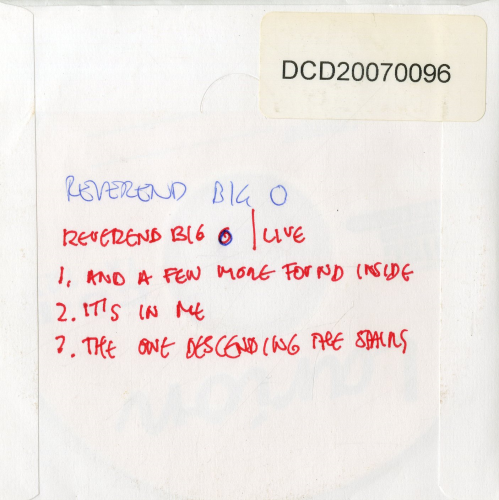 DCD20070096
REVEREND BIG O
REVEREND BIG O | LIVE
1. AND A FEW MORE FOUND INSIDE
2. IT'S IN ME
3. THE ONE DESCENDING THE STAIRS